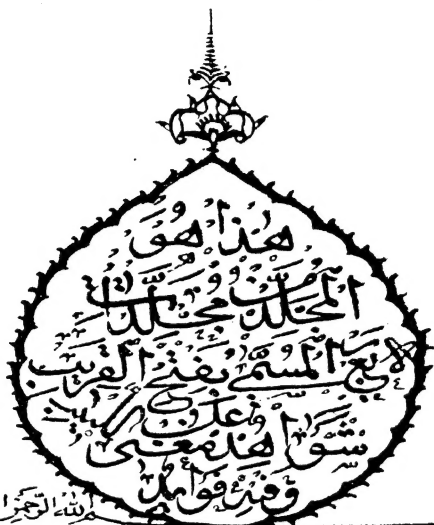 هذا هو
المجلد من مجلدات
لاربع المسمى بفتح القريب
على
شواهد مغنى اللبيب
وفيه فوائد
الله الرحمن